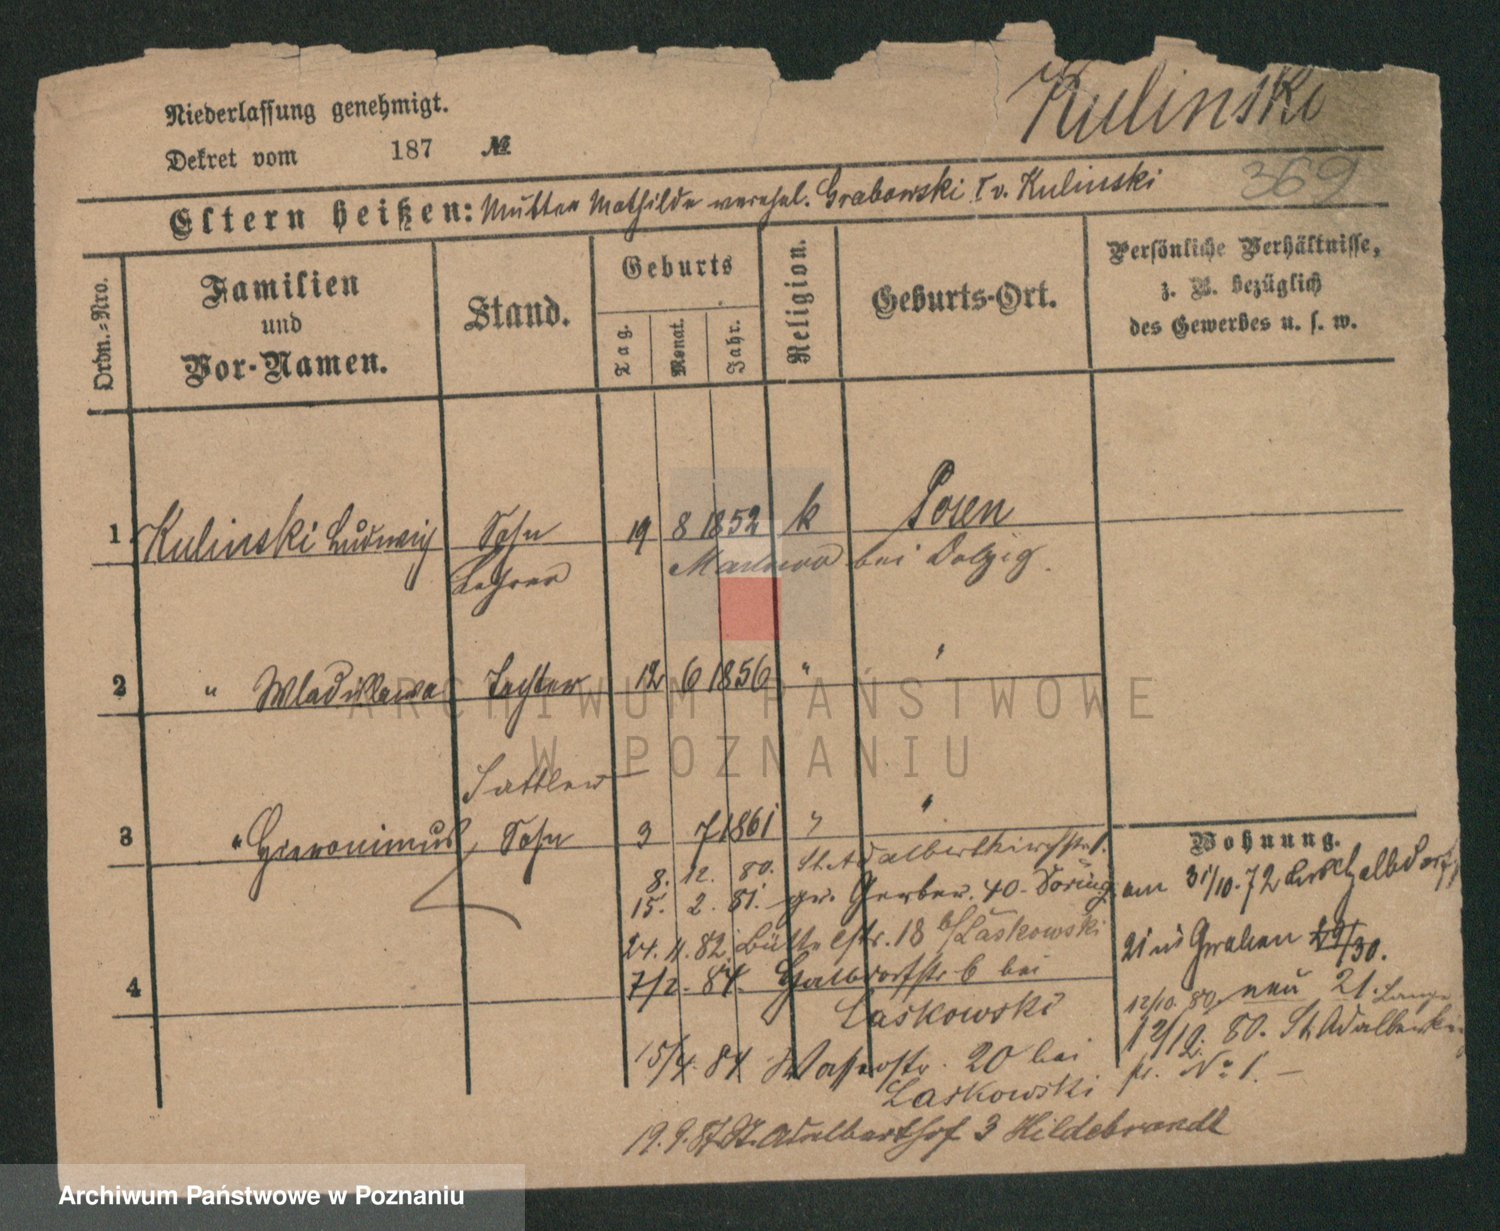 Kulinski
Niederlassung genehmigt.
Dekret vom 187 №
369
Eltern heißen: Mutter Mathilde verehel. Grabowski I v. Kulinski
Ordn.-Nro.
Familien und Vor-Namen.
Stand.
Geburts
Tag.
Monat.
Jahr.
Religion.
Geburts-Ort.
Persönliche Verhältnisse,
z. B. bezüglich
des Gewerbes u. s. w.
1 Kulinski Ludwig Sohn 19 8 1852 k Posen
Lehrer bei Dolzig.
2 " Wladislawa Tochter 12 6 1856 " "
Sattler
3 " Hieronimus Sohn 3 7 1861 " "
Wohnung.
8. 12. 80. St. Adalbertkirchstr. 1.
am 31/10. 72
15. 2. 81. gr. Gerber. 40.
24. 11. 82. Büttelstr. 18 b/Laskowski
21 Graben 29/30.
4
7/2. 84. Halbdorfstr 6 bei
Laskowski
12/10. 80. neu 21.
12/12. 80. St. Adalbertkir
str. No 1. —
15/4. 84 Wasserstr. 20 bei
Laskowski
19. 9. 87. St. Adalberthof 3 Hildebrandt
ARCHIWUM PAŃSTWOWE
W POZNANIU
Archiwum Państwowe w Poznaniu